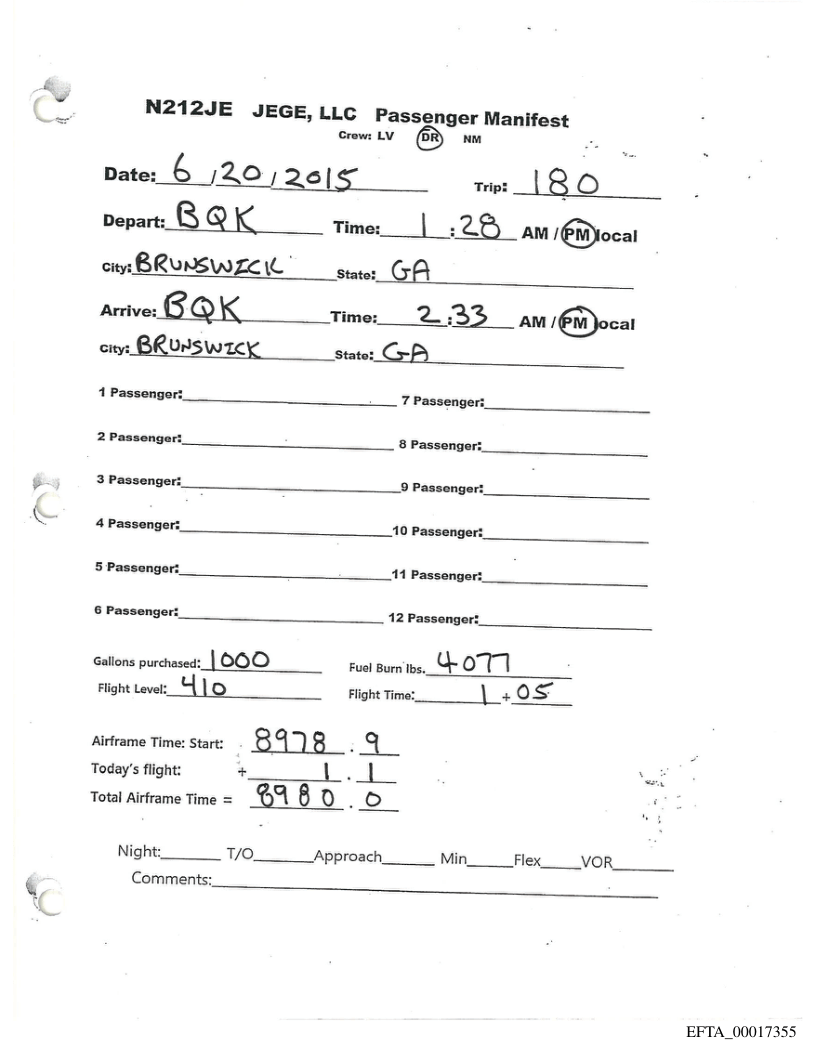 N212JE JEGE, LLC Passenger Manifest
Crew: LV DR NM
Date: 6 / 20 / 2015 Trip: 180
Depart: BQK Time: 1 : 28 AM / PM local
City: BRUNSWICK State: GA
Arrive: BQK Time: 2 : 33 AM / PM local
City: BRUNSWICK State: GA
1 Passenger: 7 Passenger:
2 Passenger: 8 Passenger:
3 Passenger: 9 Passenger:
4 Passenger: 10 Passenger:
5 Passenger: 11 Passenger:
6 Passenger: 12 Passenger:
Gallons purchased: 1000 Fuel Burn lbs. 4077
Flight Level: 410 Flight Time: 1 + 05
Airframe Time: Start: 8978 . 9
Today's flight: + 1 . 1
Total Airframe Time = 8980 . 0
Night: T/O Approach Min Flex VOR
Comments:
EFTA_00017355